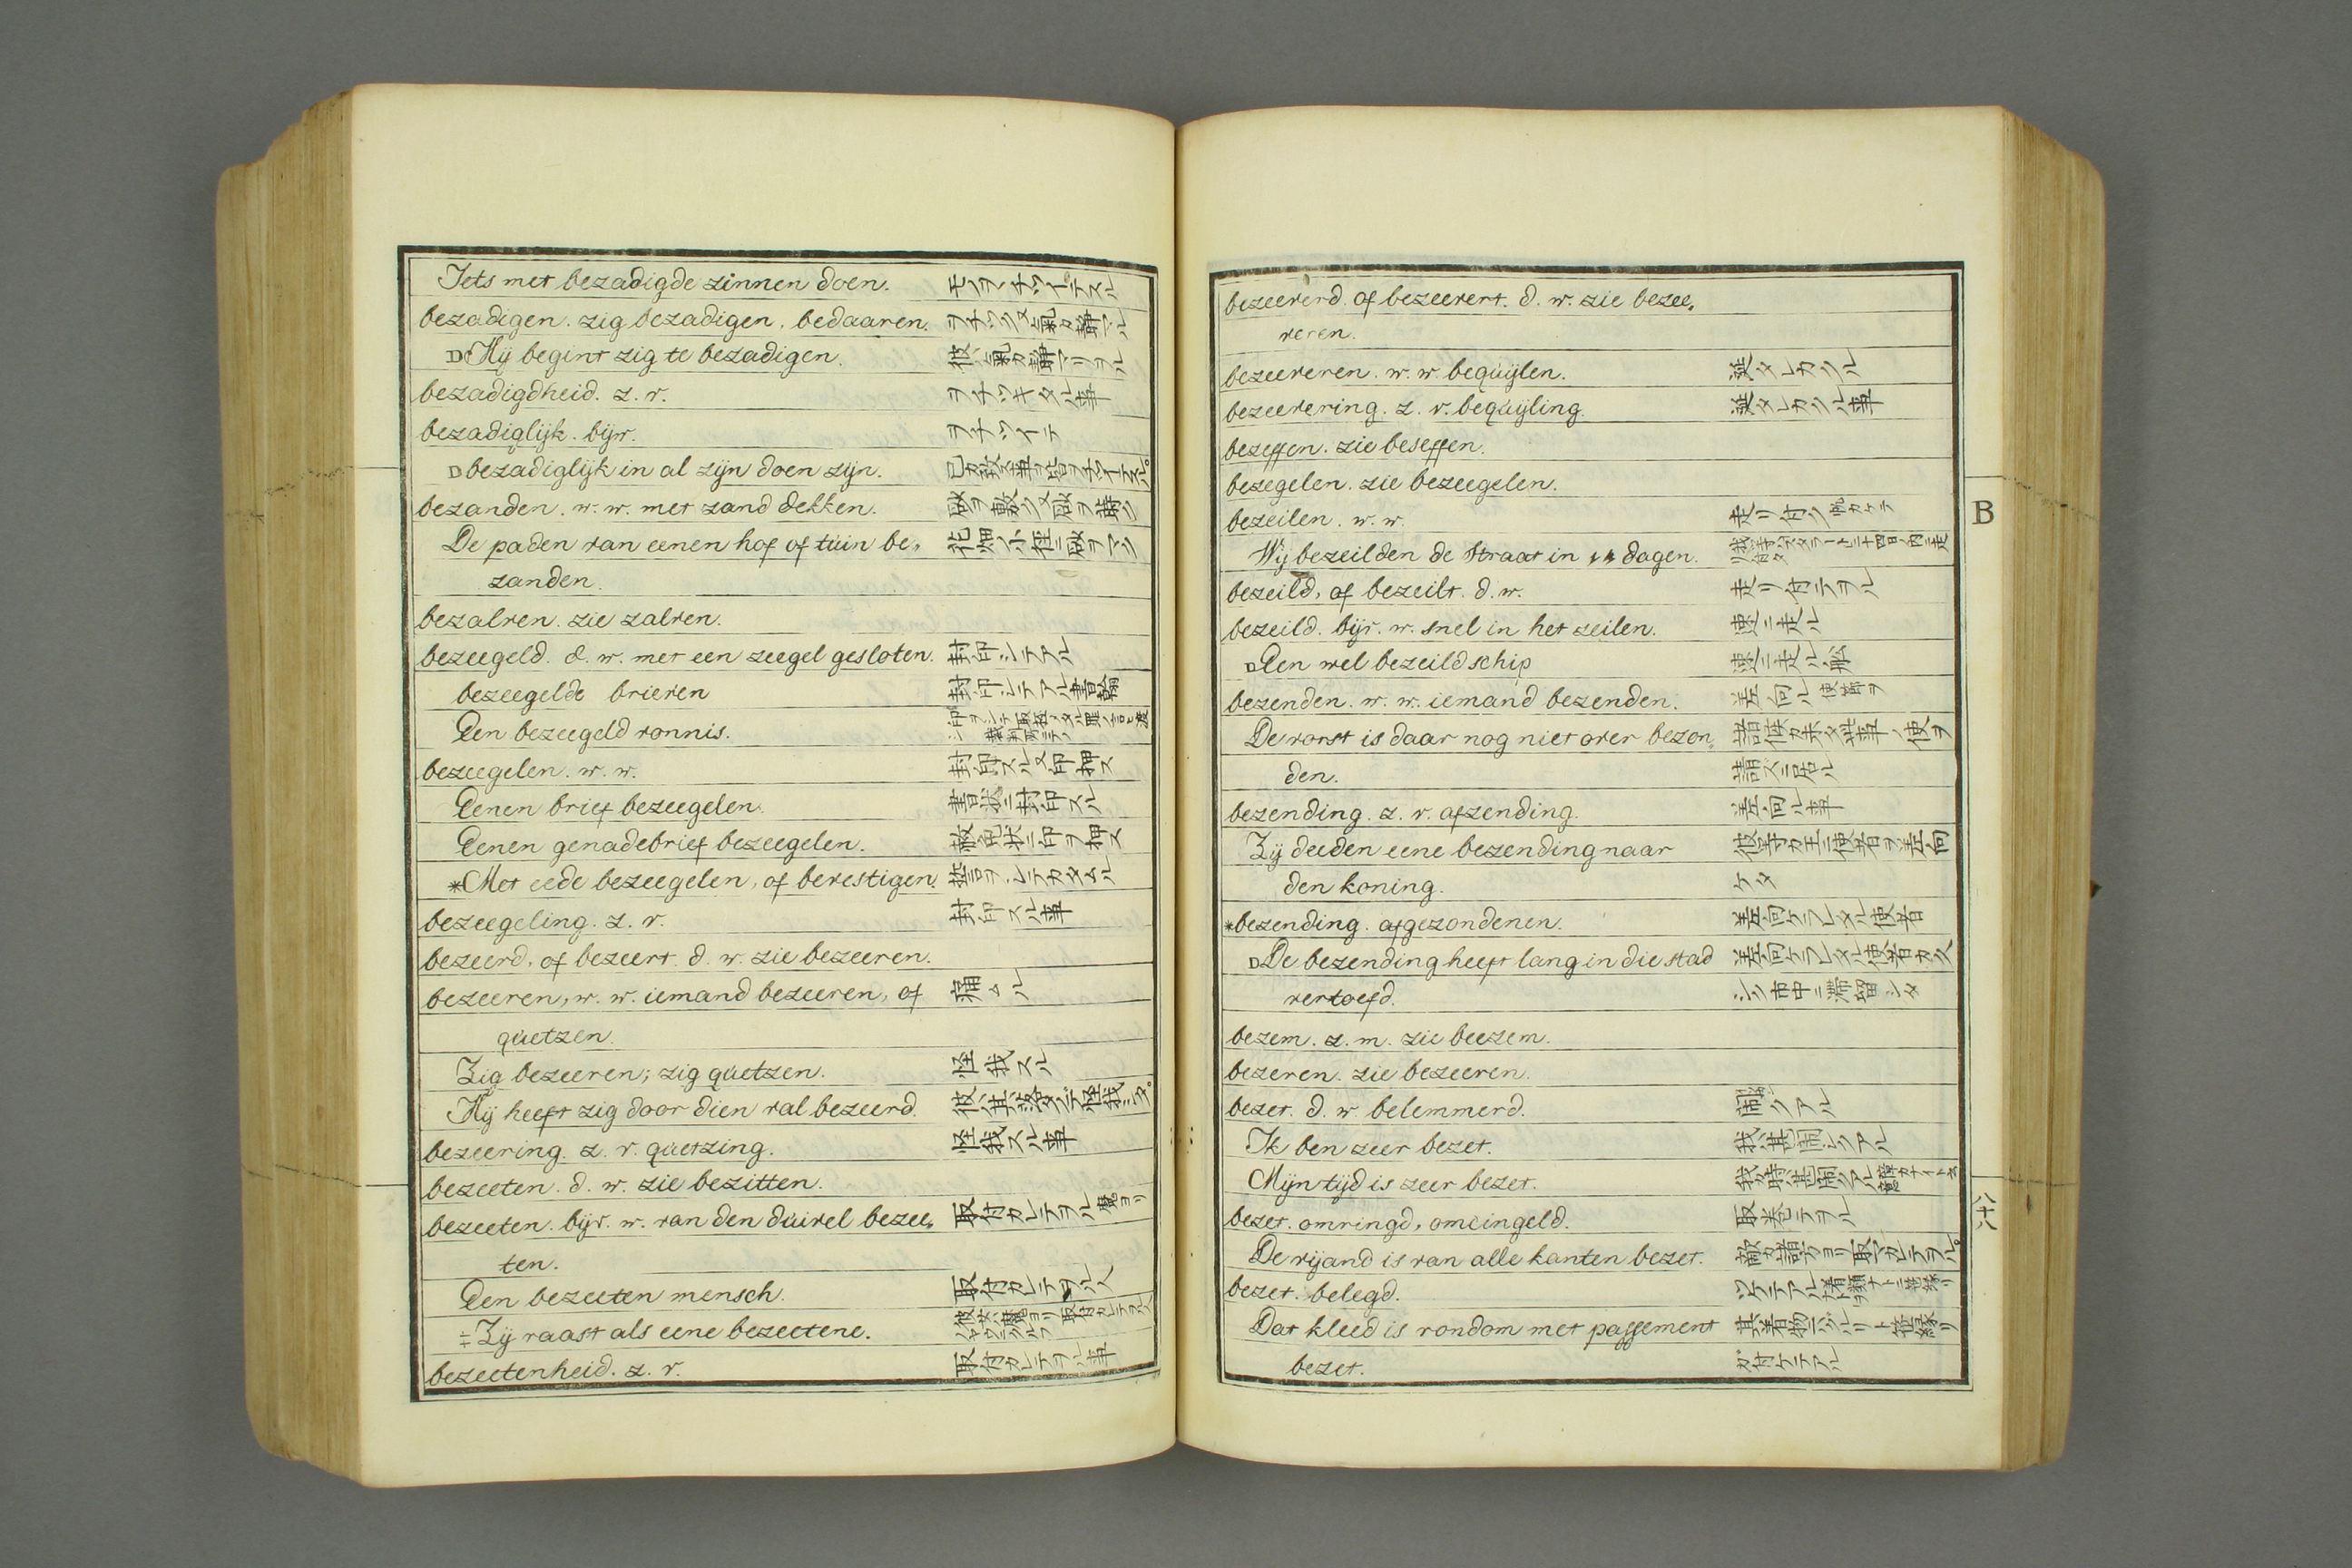 Iets met bezadigde zinnen doen. モノヲヲチツイテスル
bezadigen. zig bezadigen, bedaaren. ヲチツク又氣ガ静マル
D Hij begint zig te bezadigen. 彼ハ氣ガ静マリヲル
bezadigdheid. z. v. ヲチツキタル事
bezadiglijk. bijw. ヲチツイテ
D bezadiglijk in al zijn doen zijn.
bezanden. w. w. met zand dekken. 砂ヲ敷ク又砂ヲ蒔ク
De paden van eenen hof of tuin be„ 花畑ノ小径ニ砂ヲマク
zanden.
bezalven. zie zalven.
bezeegeld. d. w. met een zeegel gesloten. 封印シテアル
bezeegelde brieven 封印シテアル書翰
Een bezeegeld vonnis.
bezeegelen. w. w. 封印スル又印押ス
Eenen brief bezeegelen. 書状ニ封印スル
Eenen genadebrief bezeegelen. 赦免状ニ印ヲ押ス
*Met eede bezeegelen, of bevestigen. 誓言ヲシテカタムル
bezeegeling. z. v. 封印スル事
bezeerd, of bezeert. d. w. zie bezeeren.
bezeeren, w. w. iemand bezeeren, of 痛ムル
quetzen.
Zig bezeeren; zig quetzen. 怪我スル
Hij heeft zig door dien val bezeerd. 彼ハ其落タルデ怪我シタ。
bezeering. z. v. quetzing. 怪我スル事
bezeeten. d. w. zie bezitten.
bezeeten. bijv. w. van den duivel bezee„ 取付カレテヲル 魔ヨリ
ten.
Een bezeeten mensch. 取付カレテヲル人
‡Zij raast als eene bezeetene.
bezeetenheid. z. v. 取付カレテヲル事
bezeeverd. of bezeevert. d. w. zie bezee„
veren.
bezeeveren. w. w. bequijlen. 涎タレカクル
bezeevering. z. v. bequijling. 涎タレカクル事
bezeffen. zie beseffen.
bezegelen. zie bezeegelen.
bezeilen. w. w. 走リ付ク 帆カケテ
Wij bezeilden de Straat in 14 dagen.
bezeild, of bezeilt. d. w. 走リ付テヲル
bezeild. bijv. w. snel in het zeilen. 速ニ走ル
D Een wel bezeild schip 速ニ走ル舩
bezenden. w. w. iemand bezenden. 差向ル 使節ヲ
De vorst is daar nog niet over bezon„ 諸侯ガ未タ其事ノ使ヲ
den. 請ズニ居ル
bezending. z. v. afzending. 差向ル事
Zij deeden eene bezending naar 彼等ガ王ニ使者ヲ差向
den koning. ケタ
*bezending. afgezondenen. 差向ケラレタル使者
D De bezending heeft lang in die stad 差向ケラレタル使者ガ久
vertoefd. シク市中ニ滞留シタ
bezem. z. m. zie beezem.
bezeren. zie bezeeren.
bezet. d. w belemmerd.
Ik ben zeer bezet.
Mijn tijd is zeer bezet.
bezet. omringd, omcingeld. 取巻テヲル
De vijand is van alle kanten bezet. 敵ガ諸方ヨリ取マカレテヲル。
bezet. belegd.
Dat kleed is rondom met passement 其着物ニグルリト笹縁リ
bezet. ガ付ケテアル
B
八十八